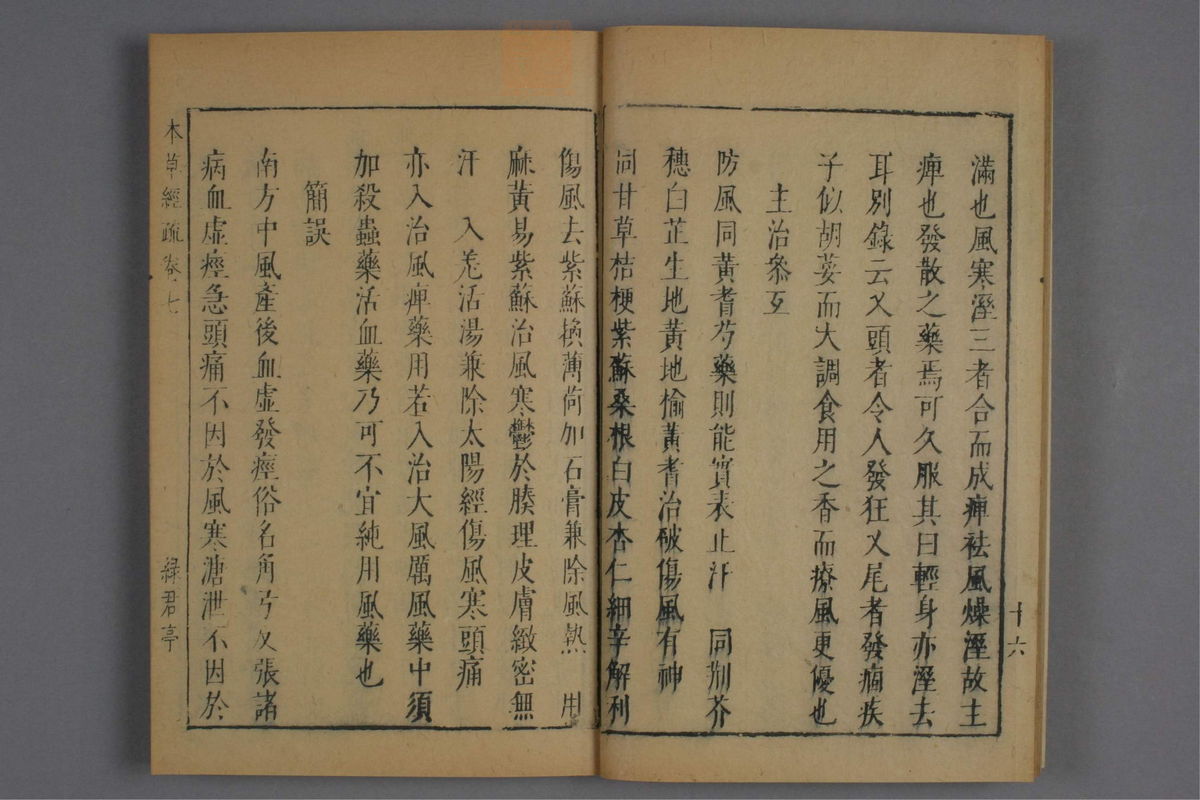 滿也風寒溼三者合而成痺祛風燥溼故主
痺也發散之藥焉可久服其曰輕身亦溼去
耳別錄云叉頭者令人發狂叉尾者發痼疾
子似胡荽而大調食用之香而療風更優也
主治參互
防風同黃耆芍藥則能實表止汗　同荆芥
穗白芷生地黃地榆黃耆治破傷風有神
同甘草桔梗紫蘇桑根白皮杏仁細辛解利
傷風去紫蘇換薄荷加石膏兼除風熱　用
麻黃易紫蘇治風寒鬱於腠理皮膚緻密無
汗　入羌活湯兼除太陽經傷風寒頭痛
亦入治風痺藥用若入治大風厲風藥中須
加殺蟲藥活血藥乃可不宜純用風藥也
簡誤
南方中風產後血虛發痙俗名角弓反張諸
病血虛痙急頭痛不因於風寒溏泄不因於
十六
本草經疏卷七
綠君亭